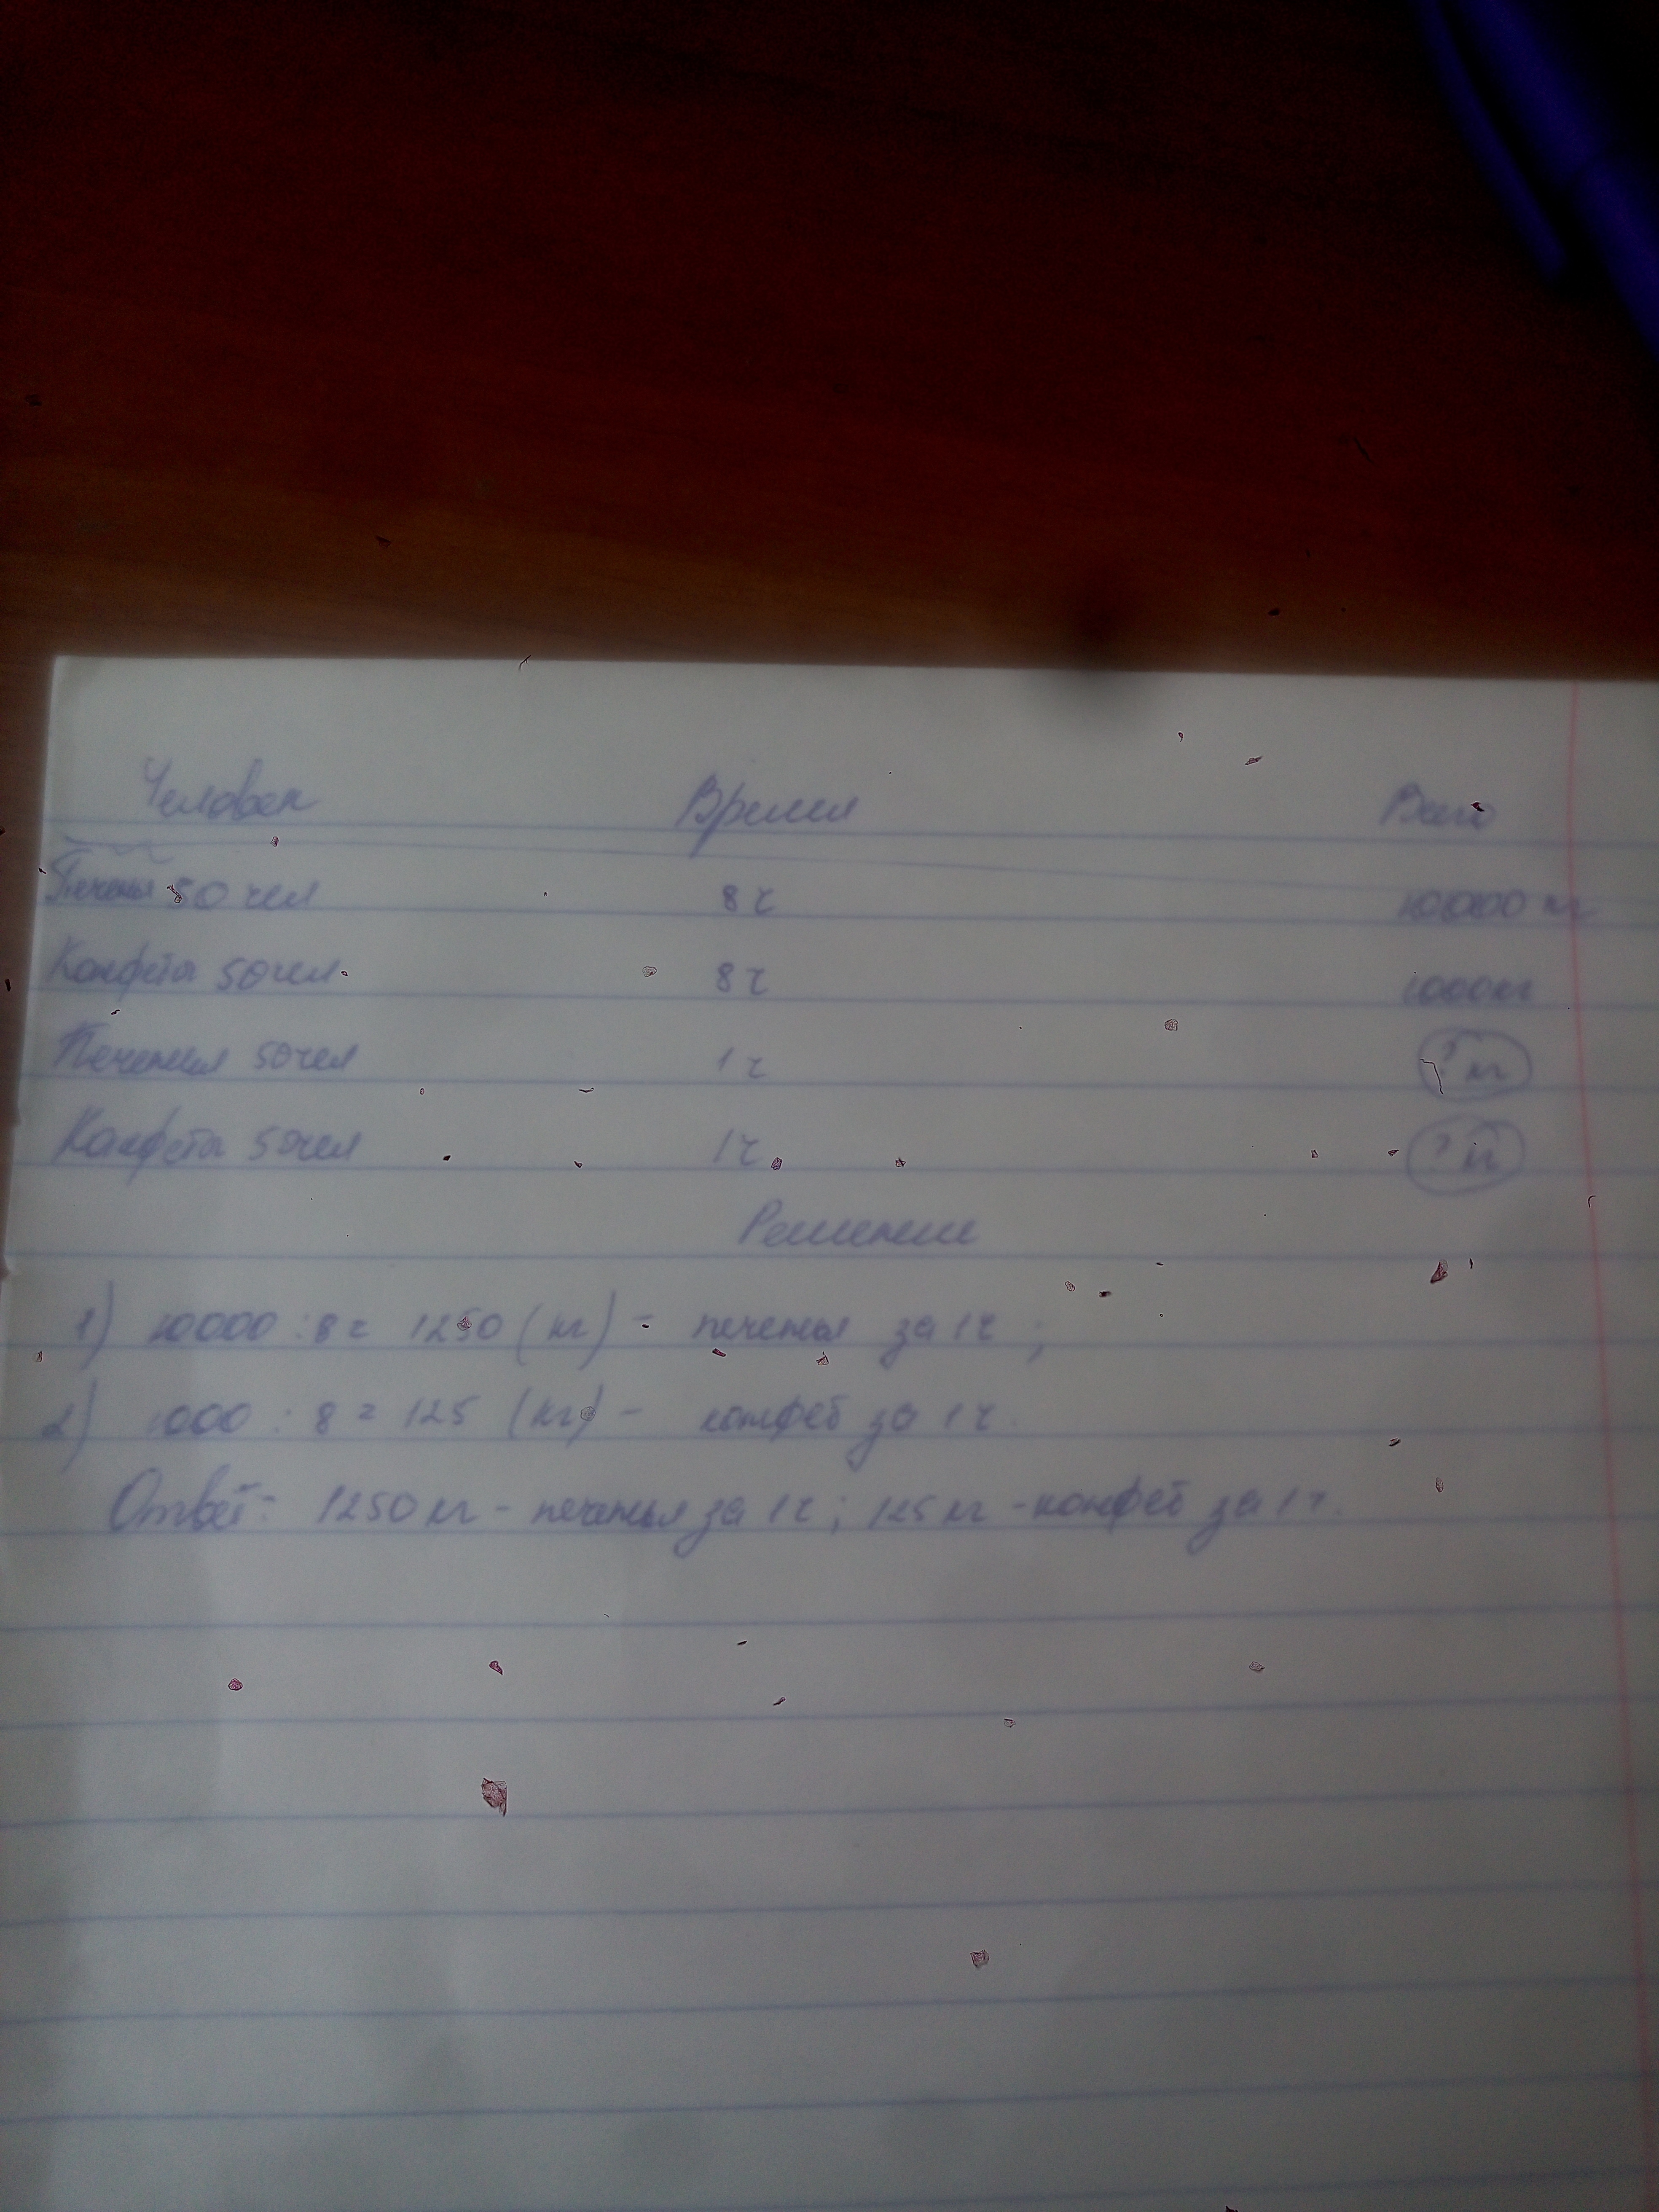 Человек Время Всего
Печенья 50 чел 8 ч 10000 кг
Конфета 50 чел. 8 ч 1000 кг
Печенья 50 чел 1 ч ? кг
Конфета 50 чел 1 ч ? кг
Решение
1) 10000 : 8 = 1250 (кг) - печенья за 1 ч ;
2) 1000 : 8 = 125 (кг) - конфет за 1 ч.
Ответ: 1250 кг - печенья за 1 ч ; 125 кг - конфет за 1 ч.